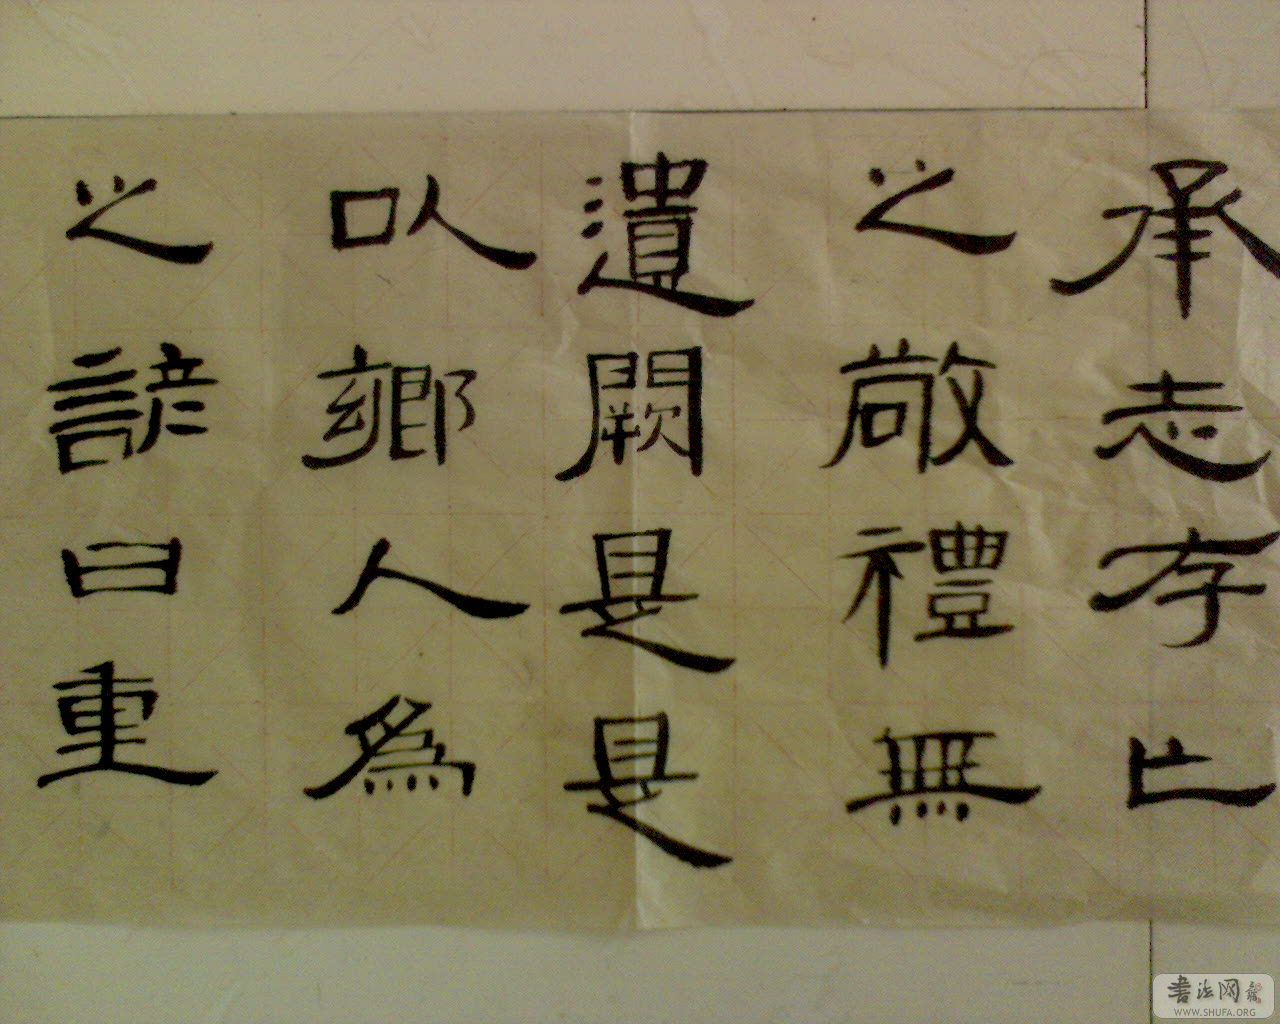 承志存亡
之敬禮無
遺闕是是
以鄉人為
之諺曰重
書法网
WWW.SHUFA.ORG